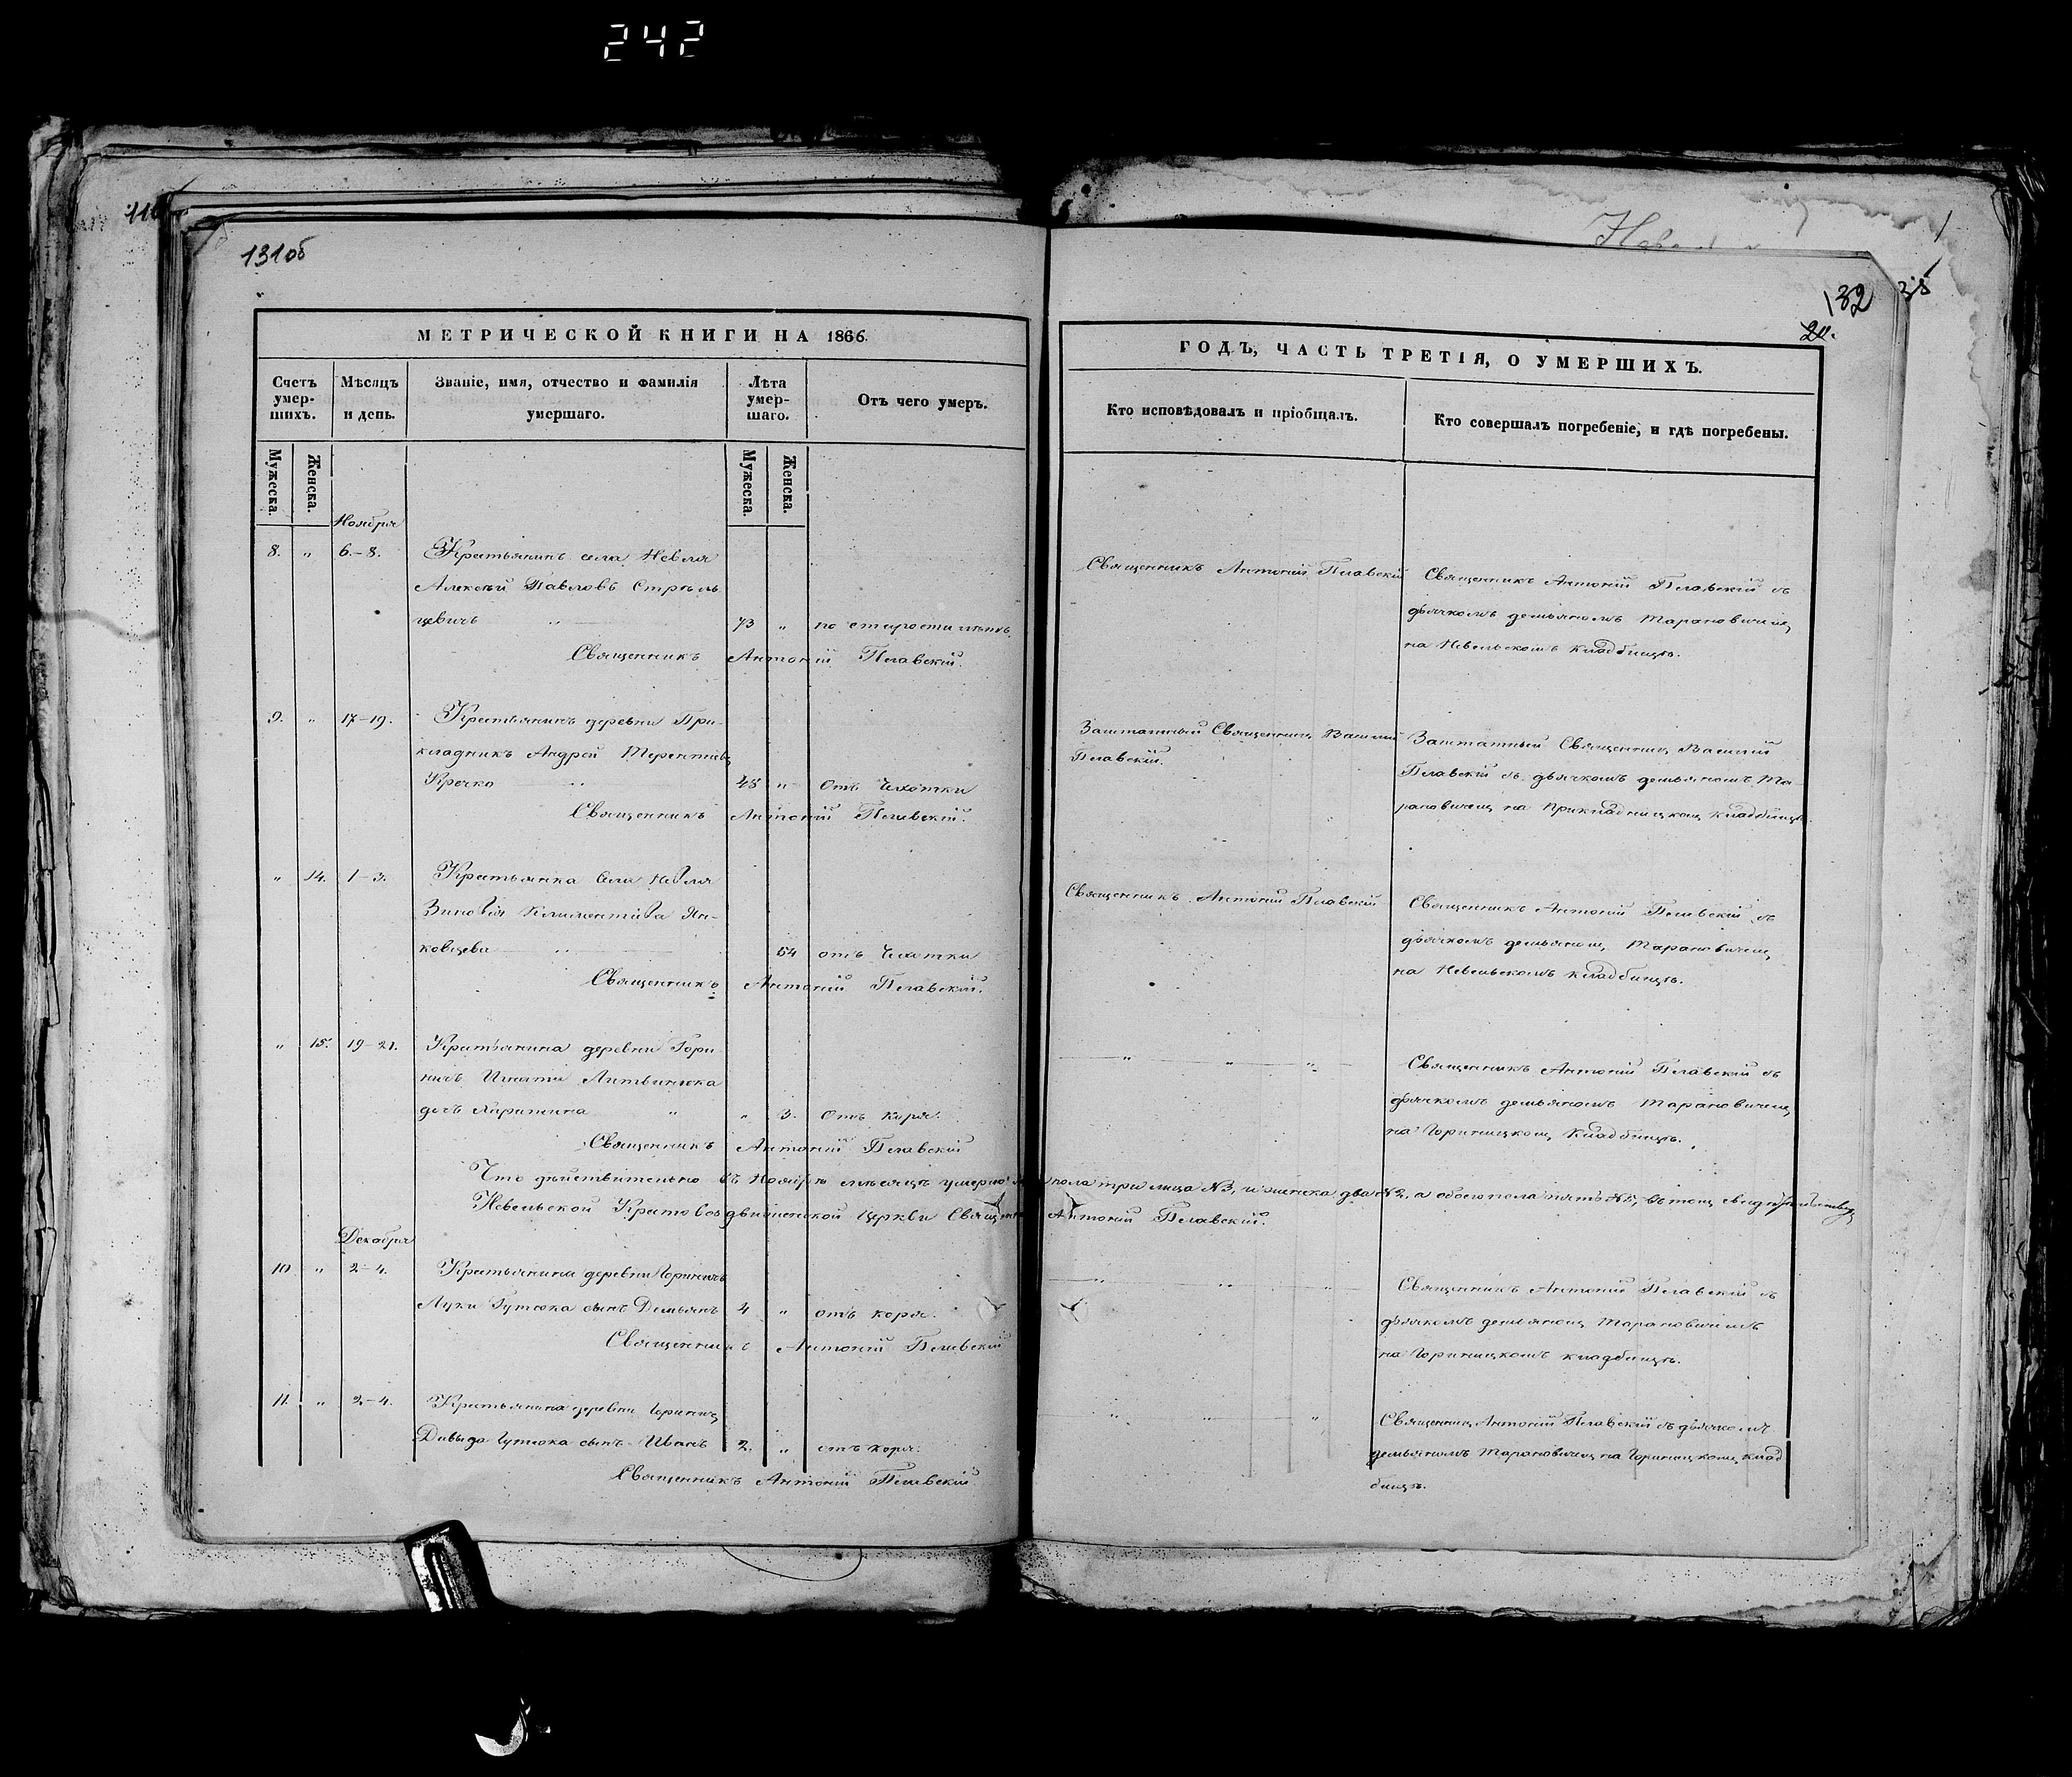 242
131об
132
20.
МЕТРИЧЕСКОЙ КНИГИ НА 1866.
Счетъ умер-шихъ.
Мѣсяцъ и день.
Званіе, имя, отчество и фамилія умершаго.
Лѣта умер-шаго.
Отъ чего умеръ.
Мужеска.
Женска.
Мужеска.
Женска.
Ноября
8. „ 6.-8. Крестьянинъ села Невля
Алексѣй Павловъ Стрѣль
цевичъ „ 73 „ по старости лѣтъ.
Священникъ Антоній Пелавскій.
9. „ 17-19. Крестьянинъ деревни При-
кладникъ Андрей Терентіевъ
Кречко „ 48 „ Отъ Чахотки
Священникъ Антоній Пелавскій.
„ 14. 1-3. Крестьянка Села Невля
Зиновія Климентіева Ян-
ковцева „ 54 отъ Чахотки
Священникъ Антоній Пелавскій.
„ 15. 19-21. Крестьянина деревни Гори-
ничъ Игнатія Литвинюка
дочь Харитина „ „ 3. Отъ Коря.
Священникъ Антоній Пелавскій
Что дѣйствительно въ Ноябрѣ мѣсяцѣ умерло пола три лица №3, и женска два №2, а обоего пола пять №5, въ томъ
Невельской Крестовоздвиженской Церкви Священникъ Антоній Пелавскій.
Декабря
10 „ 2-4. Крестьянина деревни Горничъ
Луки Гутюка сынъ Демьянъ 4 „ отъ коря.
Священникъ Антоній Пелавскій
11. „ 2-4. Крестьянина деревни Горничъ
Давыда Гутюка сынъ Иванъ 2. „ отъ коря.
Священникъ Антоній Пелавскій
ГОДЪ, ЧАСТЬ ТРЕТІЯ, О УМЕРШИХЪ.
Кто исповѣдовалъ и пріобщалъ.
Кто совершалъ погребеніе, и гдѣ погребены.
Священникъ Антоній Пелавскій
Священникъ Антоній Пелавскій съ
дьячкомъ демьяномъ Тарановичемъ
на Невельскомъ кладбищѣ.
Заштатный Священникъ Василій
Пелавскій.
Заштатный Священникъ Василій
Пелавскій съ дьячкомъ демьяномъ Та-
рановичемъ на Прикладницкомъ кладбищѣ.
Священникъ Антоній Пелавскій
Священникъ Антоній Пелавскій съ
дьячкомъ демьяномъ Тарановичемъ
на Невельскомъ кладбищѣ.
„ „ „
Священникъ Антоній Пелавскій съ
дьячкомъ демьяномъ Тарановичемъ
на Горницкомъ кладбищѣ.
„ „ „
Священникъ Антоній Пелавскій съ
дьячкомъ демьяномъ Тарановичемъ
на Горницкомъ кладбищѣ.
„ „ „
Священникъ Антоній Пелавскій съ дьячкомъ
демьяномъ Тарановичемъ на Горницкомъ клад
бищѣ.